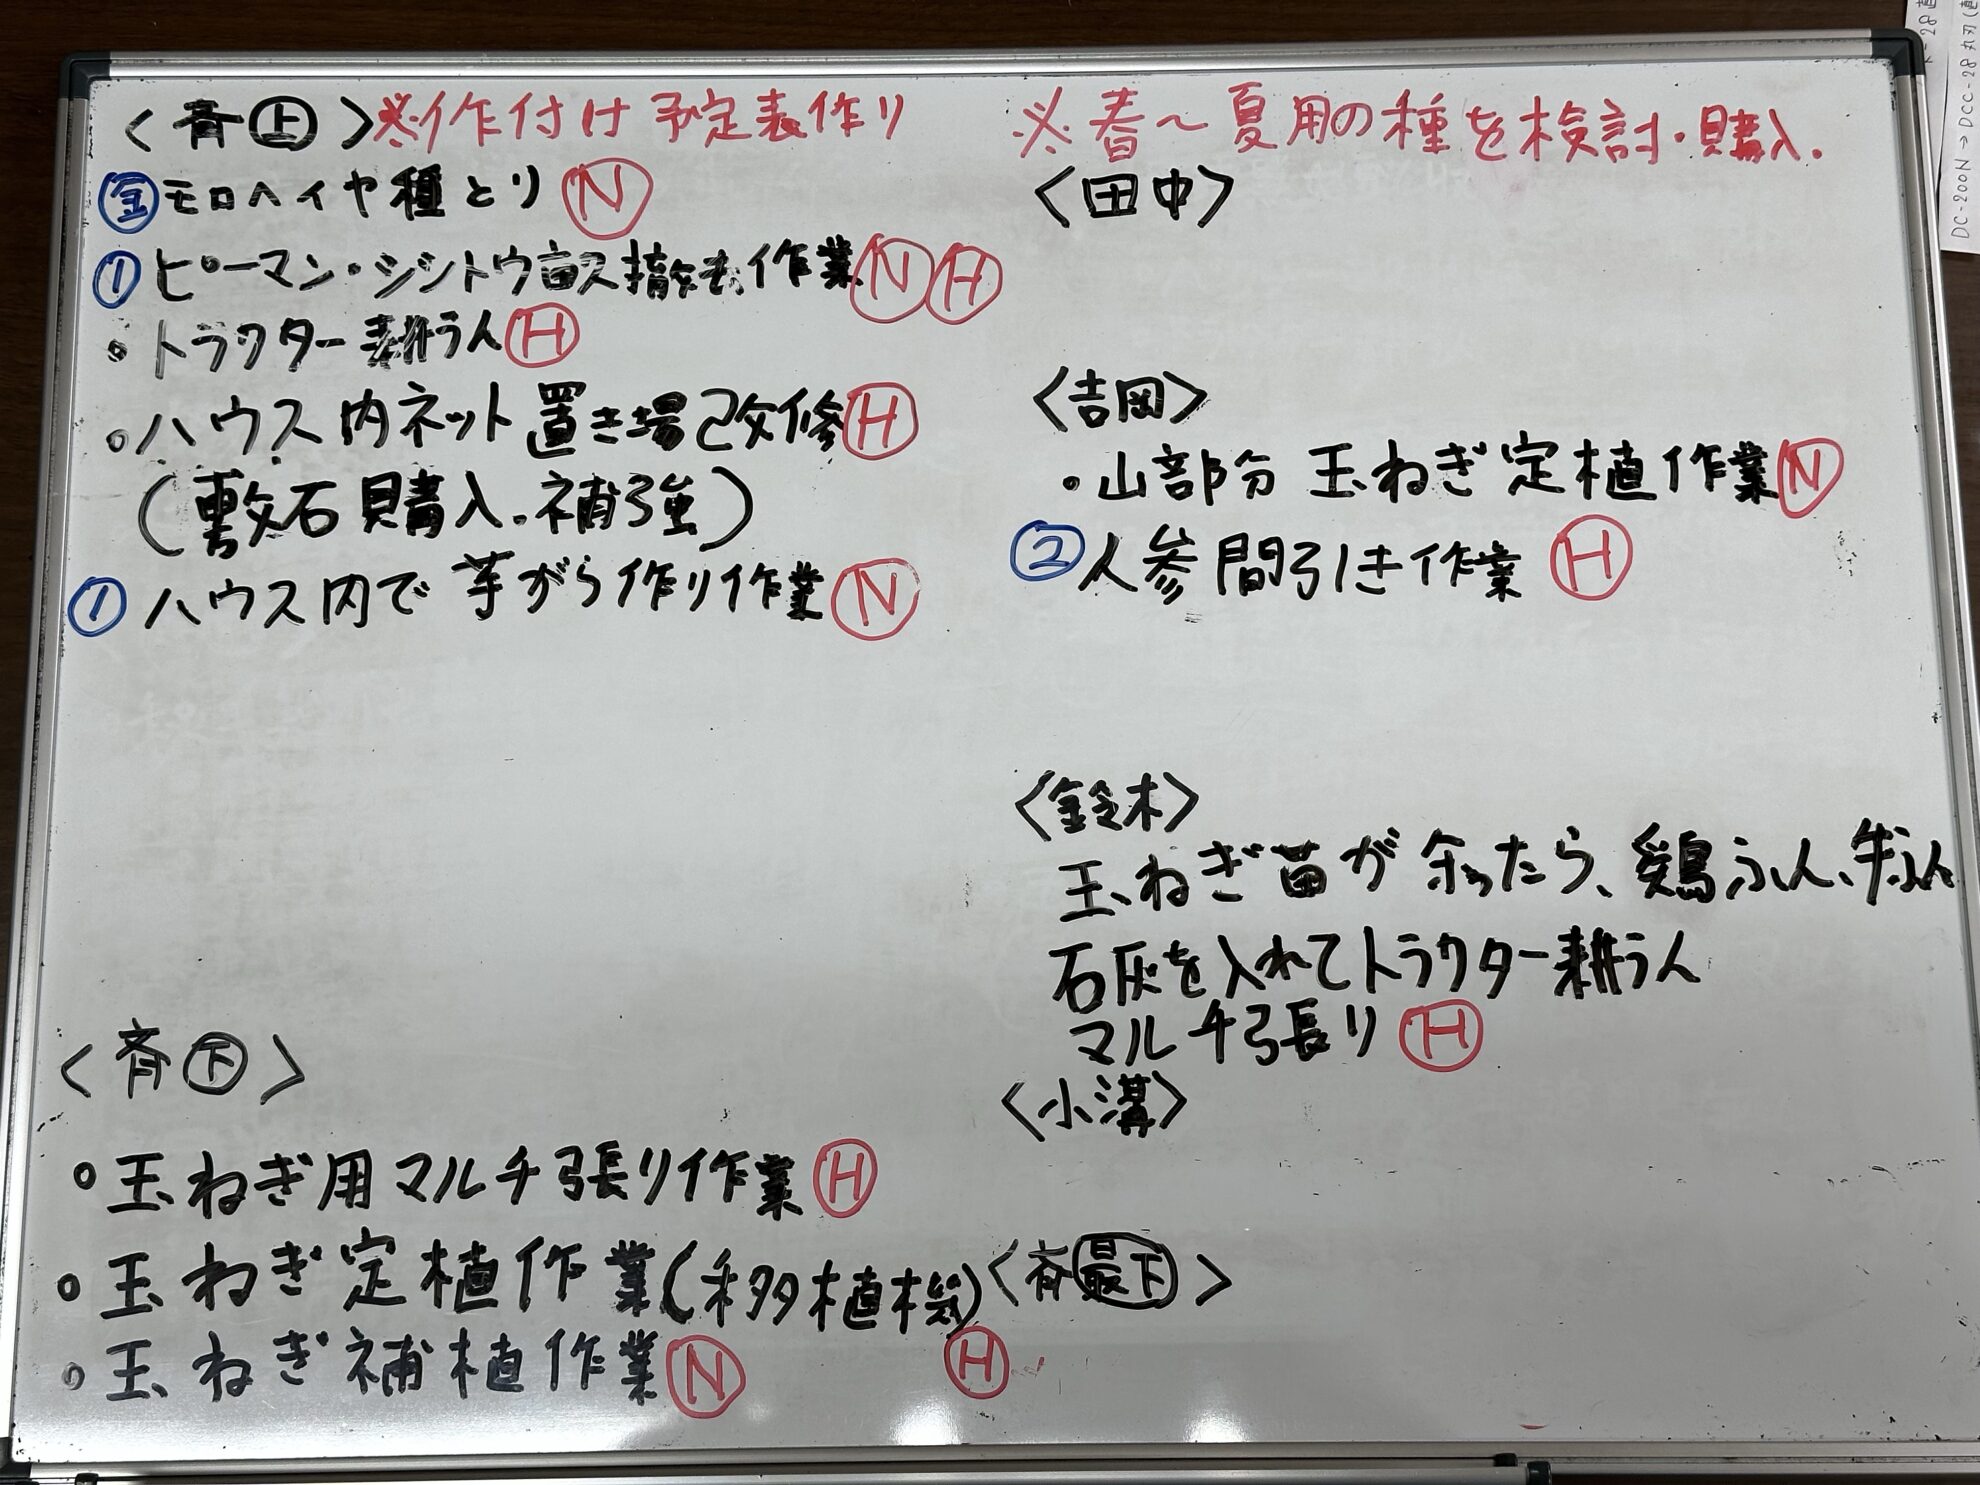 〈斉㊤〉※作付け予定表作り
㊎モロヘイヤ種とり Ⓝ
①ピーマン・シシトウ畝ス撤去作業ⓃⒽ
・トラクター耕うんⒽ
・ハウス内ネット置き場改修Ⓗ
(敷石購入、補強)
①ハウス内で芋がら作り作業Ⓝ
〈斉㊦〉
・玉ねぎ用マルチ張り作業Ⓗ
・玉ねぎ定植作業(移植機)
Ⓗ
・玉ねぎ補植作業Ⓝ
※春~夏用の種を検討・購入.
〈田中〉
〈吉岡〉
・山部分 玉ねぎ定植作業Ⓝ
②人参間引き作業 Ⓗ
〈鈴木〉
玉ねぎ苗が余ったら、鶏ふん、牛ふん
石灰を入れてトラクター耕うん
マルチ張り Ⓗ
〈小溝〉
〈斉最下〉
DC-200N→DCC-28丸刃